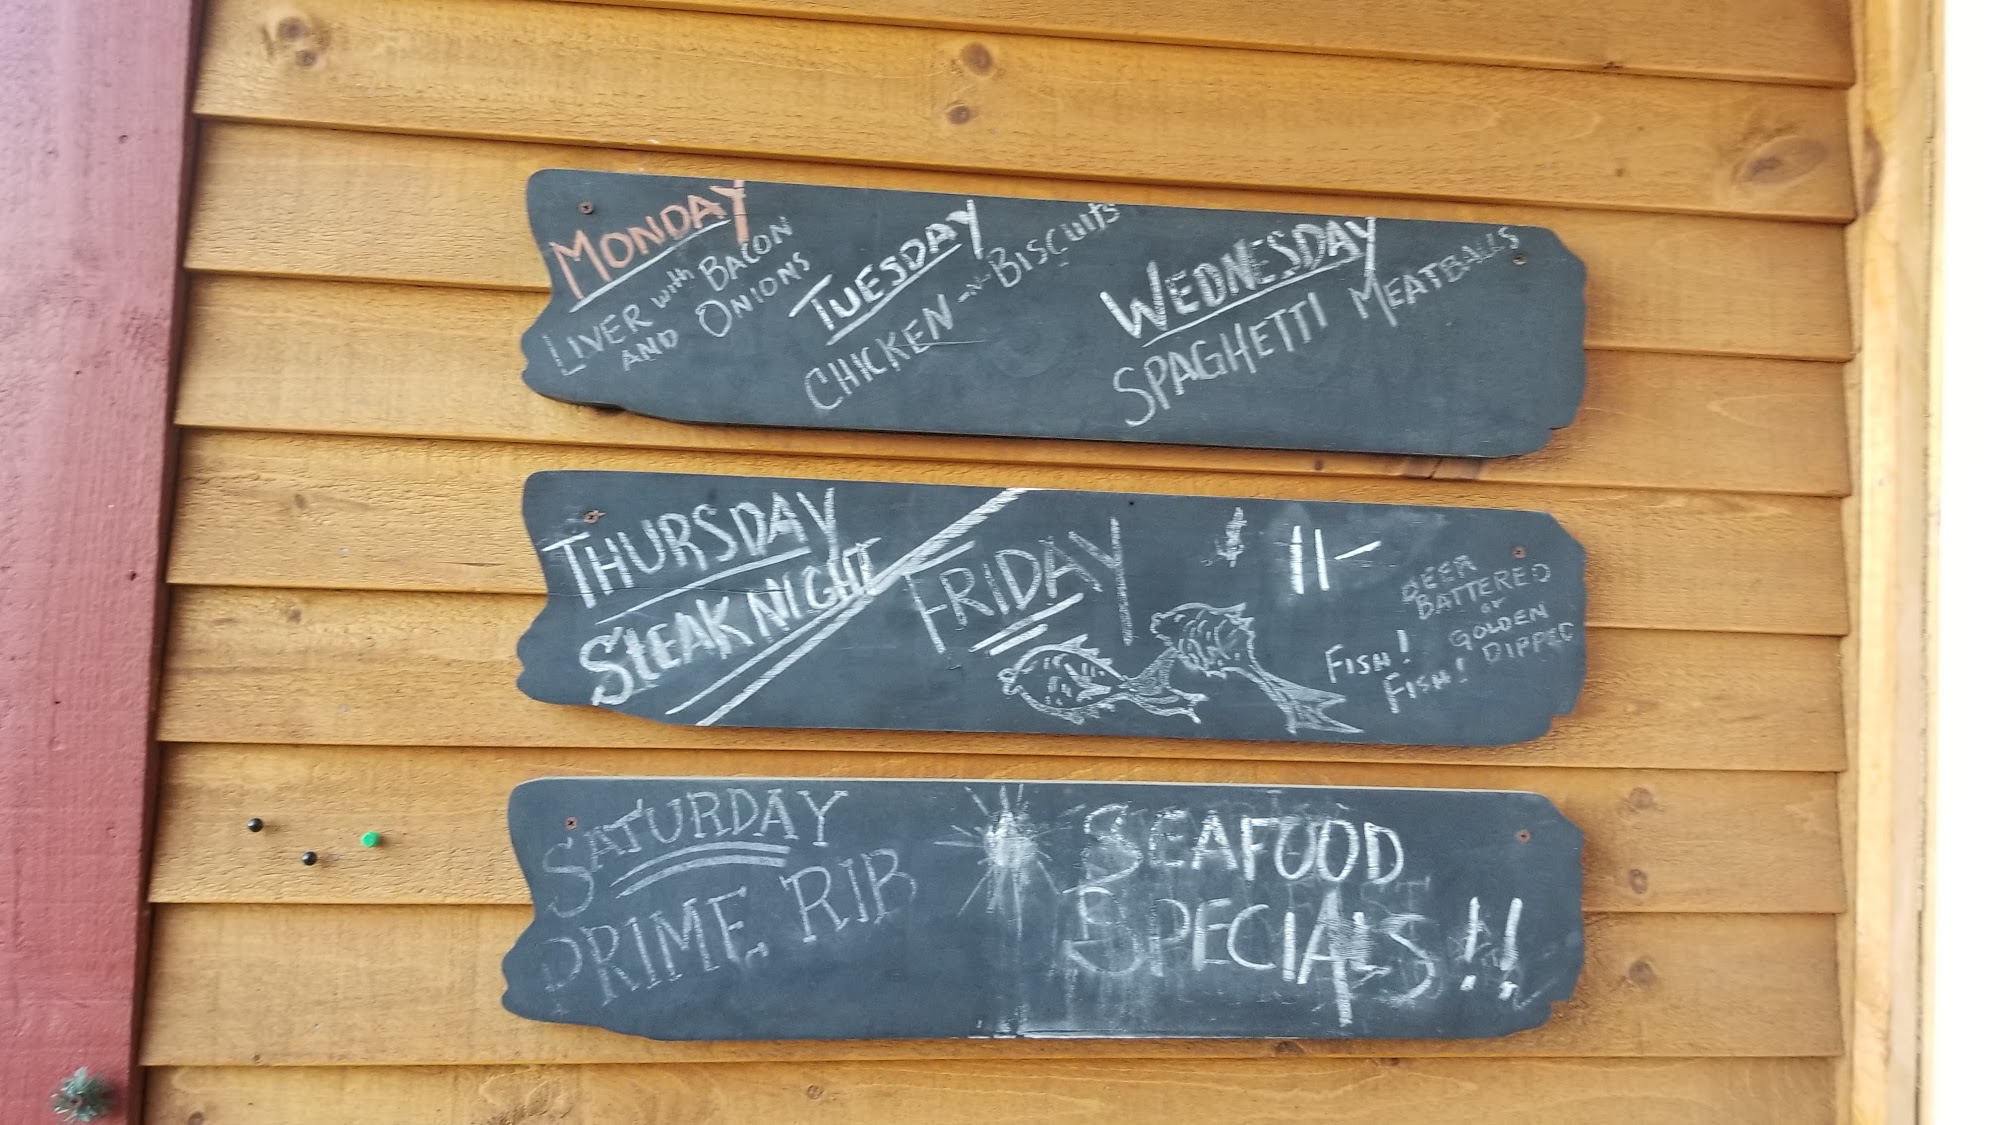 MONDAY
LIVER with BACON
AND ONIONS
TUESDAY
CHICKEN -N- BISCUITS
WEDNESDAY
SPAGHETTI MEATBALLS
THURSDAY
STEAK NIGHT
FRIDAY
$ 11-
FISH!
FISH!
BEER
BATTERED
or
GOLDEN
DIPPED
SATURDAY
PRIME RIB
SEAFOOD
SPECIALS!!